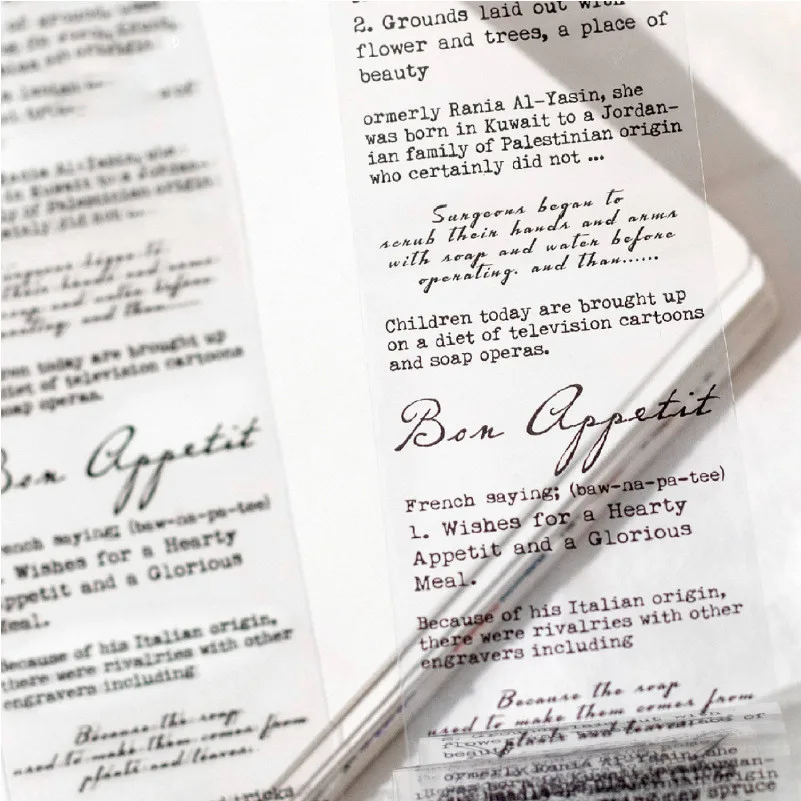 2. Grounds laid out with
flower and trees, a place of
beauty
ormerly Rania Al-Yasin, she
was born in Kuwait to a Jordan-
ian family of Palestinian origin
who certainly did not ...
Surgeons began to
scrub their hands and arms
with soap and water before
operating. and than......
Children today are brought up
on a diet of television cartoons
and soap operas.
Bon Appetit
French saying; (baw-na-pa-tee)
1. Wishes for a Hearty
Appetit and a Glorious
Meal.
Because of his Italian origin,
there were rivalries with other
engravers including
Because the soap
used to make them comes from
plants and leaves.
en today are brought up
diet of television cartoons
soap operas.
Bon Appetit
ench saying; (baw-na-pa-tee)
Wishes for a Hearty
ppetit and a Glorious
Meal.
Because of his Italian origin,
there were rivalries with other
engravers including
Because the soap
used to make them comes from
plants and leaves.